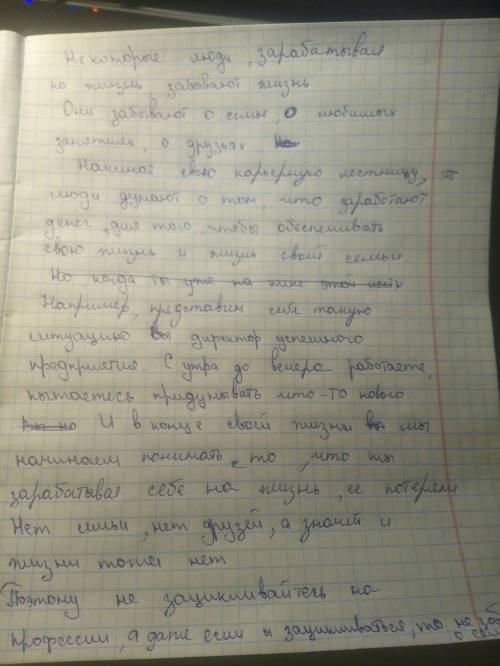 Некоторые люди, зарабатывая
на жизнь, забывают жизнь.
Они забывают о семье, о любимых
занятиях, о друзьях.
Начиная свою карьерную лестницу,
люди думают о том, что заработают
денег, для того, чтобы обеспечивать
свою жизнь и жизнь своей семьи.
Но когда ты уже на пике этой
Например, представим себе такую
ситуацию вы директор успешного
предприятия. С утра до вечера работаете,
пытаетесь придумывать что-то нового
И в конце своей жизни мы
начинаем понимать то, что ты
зарабатывая себе на жизнь, ее потеряли
Нет семьи, нет друзей, а значит и
жизни тоже нет
Поэтому не зацикливайтесь на
профессии, а даже если и зацикливаться, то не заб
о сем